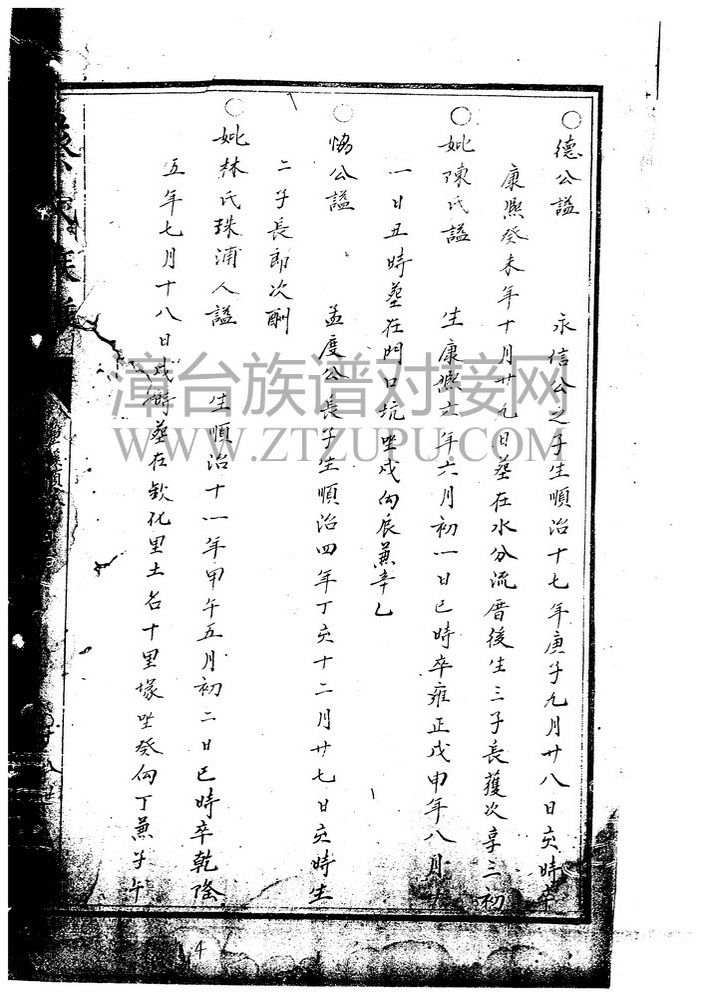 ○德公諡 永信公之子生順治十七年庚子九月廿八日亥時卒
康熙癸未年十月廿九日墓在水分流厝後生三子長獲次享三初
○妣陳氏諡 生康熙六年六月初一日巳時卒雍正戊申年八月
一日丑時墓在門口坑坐戌向辰兼辛乙
○協公諡 孟度公長子生順治四年丁亥十二月廿七日亥時生
二子長郎次酬
○妣林氏珠浦人諡 生順治十一年甲午五月初二日巳時卒乾隆
五年七月十八日戌時墓在欽化里土名十里塚坐癸向丁兼子午
漳台族谱对接网
WWW.ZTZUPU.COM
4